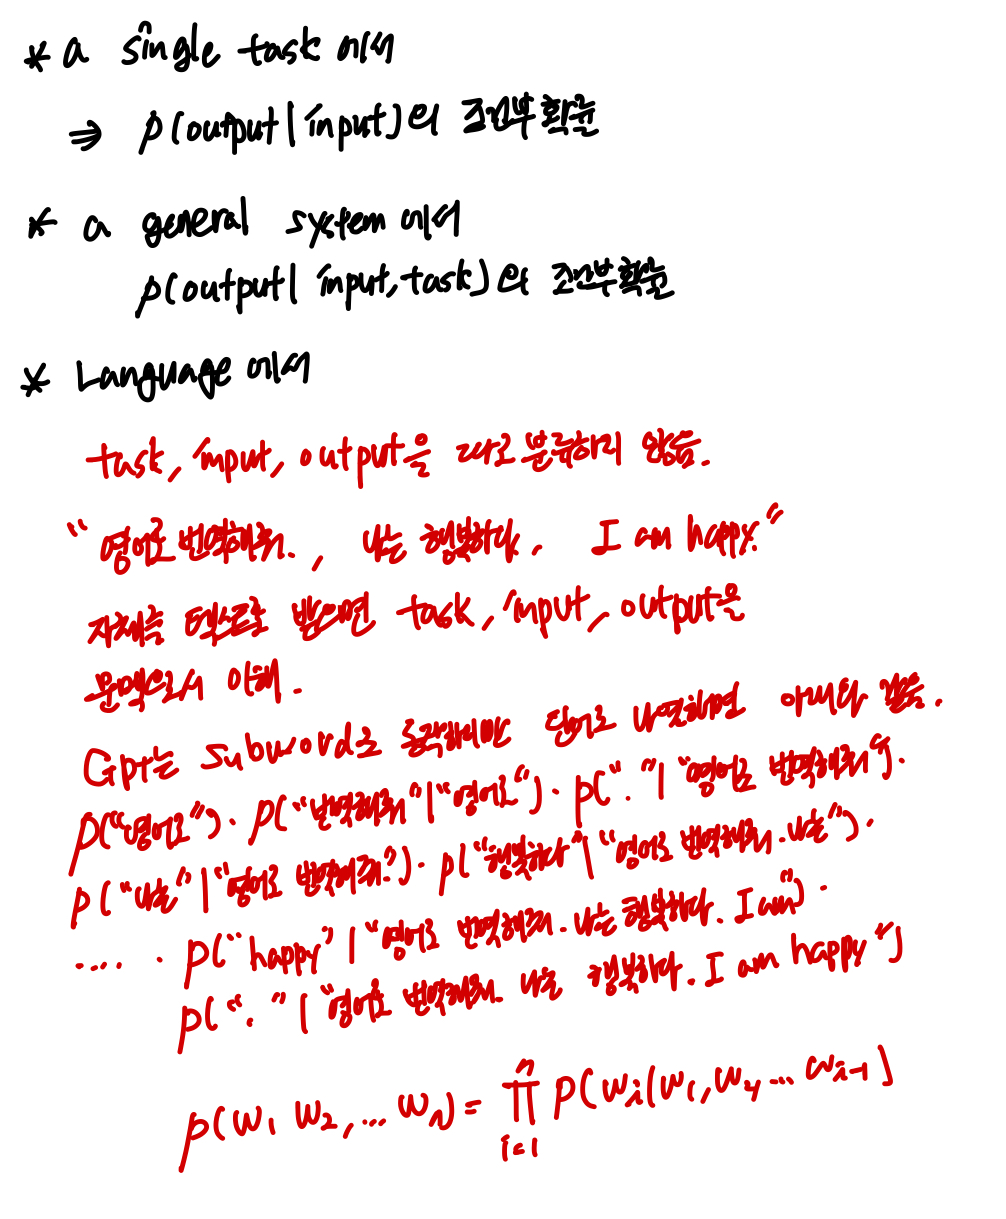 * a single task 에서
⇒ p(output | input)의 조건부 확률
* a general system 에서
p(output | input, task)의 조건부확률
* Language 에서
task, input, output을 따로 분류하지 않음.
“영어로 번역해줘., 나는 행복하다. I am happy.”
자체를 텍스트로 받으면 task, input, output을
문맥으로서 이해.
Gpt는 subword로 동작하지만 단어로 나열하면 아래와 같음.
p(“영어로”)· p(“번역해줘”|“영어로”)· p(“.”|“영어로 번역해줘”)·
p(“나는”|“영어로 번역해줘.”)· p(“행복하다”|“영어로 번역해줘. 나는”)·
.... · p(“happy”|“영어로 번역해줘. 나는 행복하다. I am”)·
p(“.”|“영어로 번역해줘. 나는 행복하다. I am happy”)
p(w₁ w₂, ... wₙ) = ∏ᵢ₌₁ⁿ p(wᵢ|w₁, w₂ ... wᵢ₋₁)